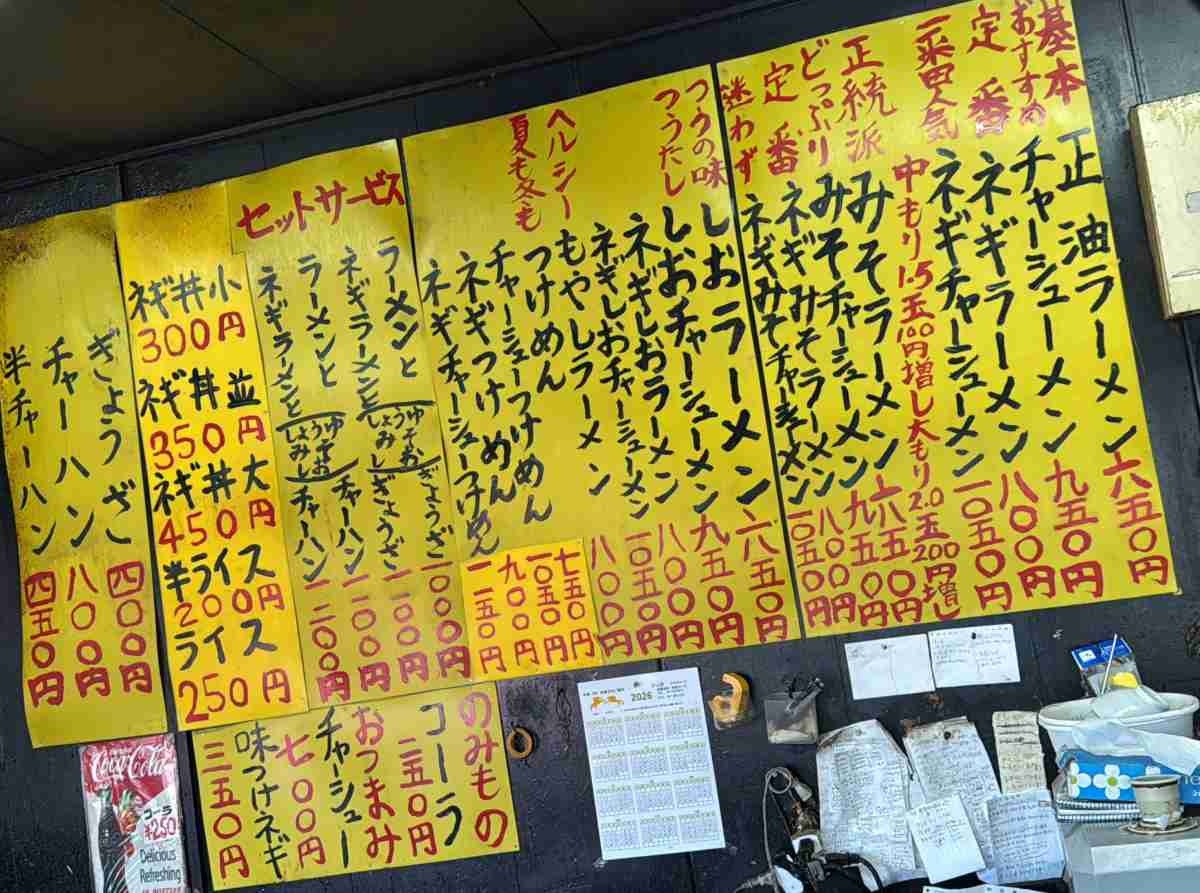 基本 正油ラーメン 六五〇円
おすすめ チャーシューメン 九五〇円
定番 ネギラーメン 八〇〇円
一番人気 ネギチャーシューメン 一〇五〇円
中もり1.5玉100円増し大もり2.0玉200円増し
正統派 みそラーメン 六五〇円
どっぷり みそチャーシューメン 九五〇円
定番 ネギみそラーメン 八〇〇円
迷わず ネギみそチャーシューメン 一〇五〇円
つうの味 しおラーメン 六五〇円
しおチャーシューメン 九五〇円
ネギしおラーメン 八〇〇円
ネギしおチャーシューメン 一〇五〇円
ヘルシー もやしラーメン 八〇〇円
夏も冬も つけめん 七五〇円
チャーシューつけめん 一〇五〇円
ネギつけめん 九〇〇円
ネギチャーシューつけめん 一一五〇円
セットサービス
ラーメンと しょうゆ みそ しお ぎょうざ 一〇〇〇円
ネギラーメンと ぎょうざ 一一〇〇円
ラーメンと しょうゆ みそ しお チャーハン 一一〇〇円
ネギラーメンと チャーハン 一二〇〇円
ネギ丼小
300円
ネギ丼並
350円
ネギ丼大
450円
半ライス
200円
ライス
250円
ぎょうざ 四〇〇円
チャーハン 八〇〇円
半チャーハン 四五〇円
のみもの
コーラ 二五〇円
おつまみ
チャーシュー 七〇〇円
味つけネギ 三五〇円
Coca-Cola
コーラ
¥250
Delicious
Refreshing
2026